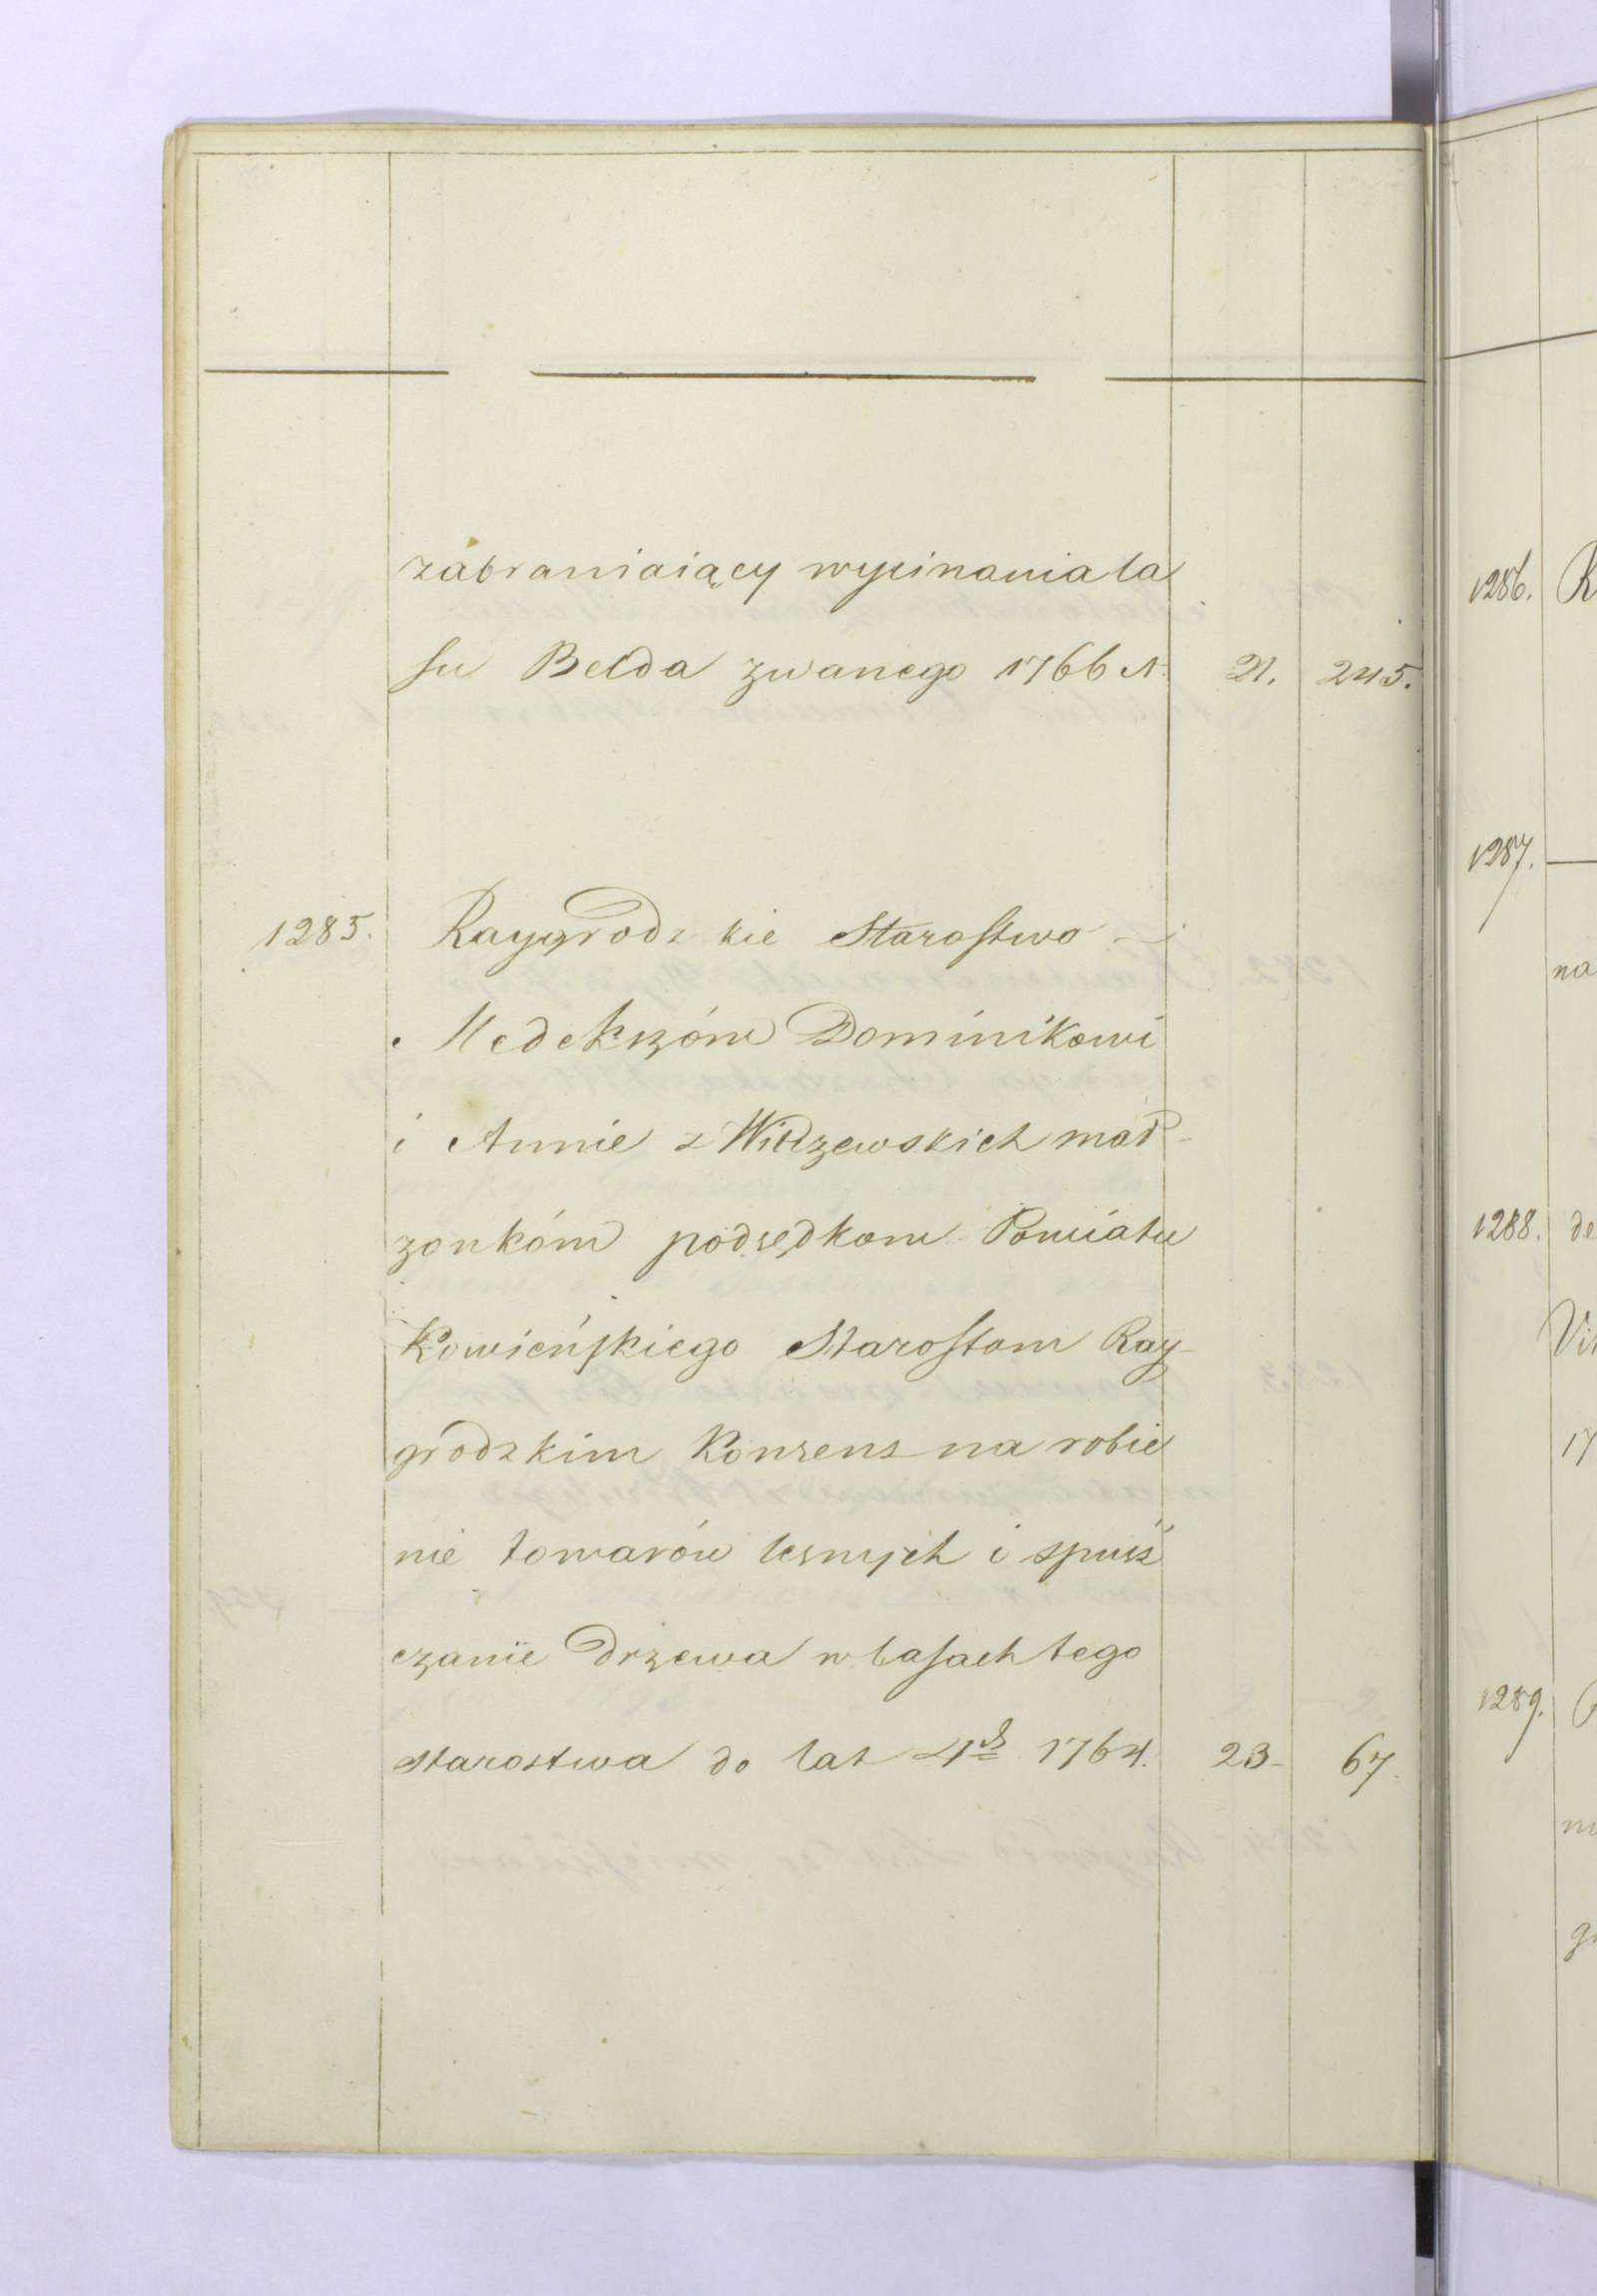 zabraniaiący wycinania la
su Bełda zwanego 1766 r. 21. 245.
1285. Raygrodzkie Starostwo —
Medekszóm Dominikowi
i Annie z Witrzewskich mał-
zonkóm podsędkom Powiatu
Kowieńskiego Starostom Ray-
grodzkim Konsens na robie
nie towarów lesnych i spusz
czanie drzewa w lasach tego
starostwa do lat 4ch 1764. 23- 67.
1286. R
1287. —
na
1288. de
17
1289.